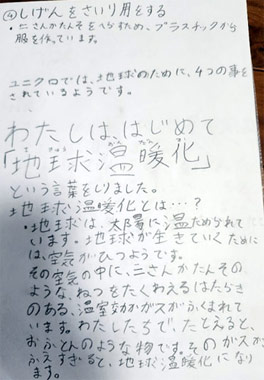 ④しげんをさいり用をする
・二さんかたんそをへらすため、プラスチックから
服を作っています。
ユニクロでは、地球のために、4つの事を
されているようです。
わたしは、はじめて
「地球温暖化」
という言葉をしりました。
地球温暖化とは…?
・地球は、太陽に温ためられて
います。地球が生きていくために
は、空気がひつようです。
その空気の中に、二さんかたんその
ような、ねつをたくわえるはたらき
のある、温室効かガスがふくまれて
います。わたしたちで、たとえると、
おふとんのような物です。そのガスが
ふえすぎると、地球温暖化になり
ます。